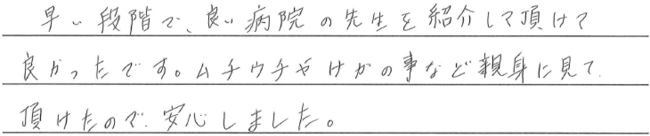 早い段階で、良い病院の先生を紹介して頂けて
良かったです。ムチウチやけがの事など親身に見て
頂けたので、安心しました。